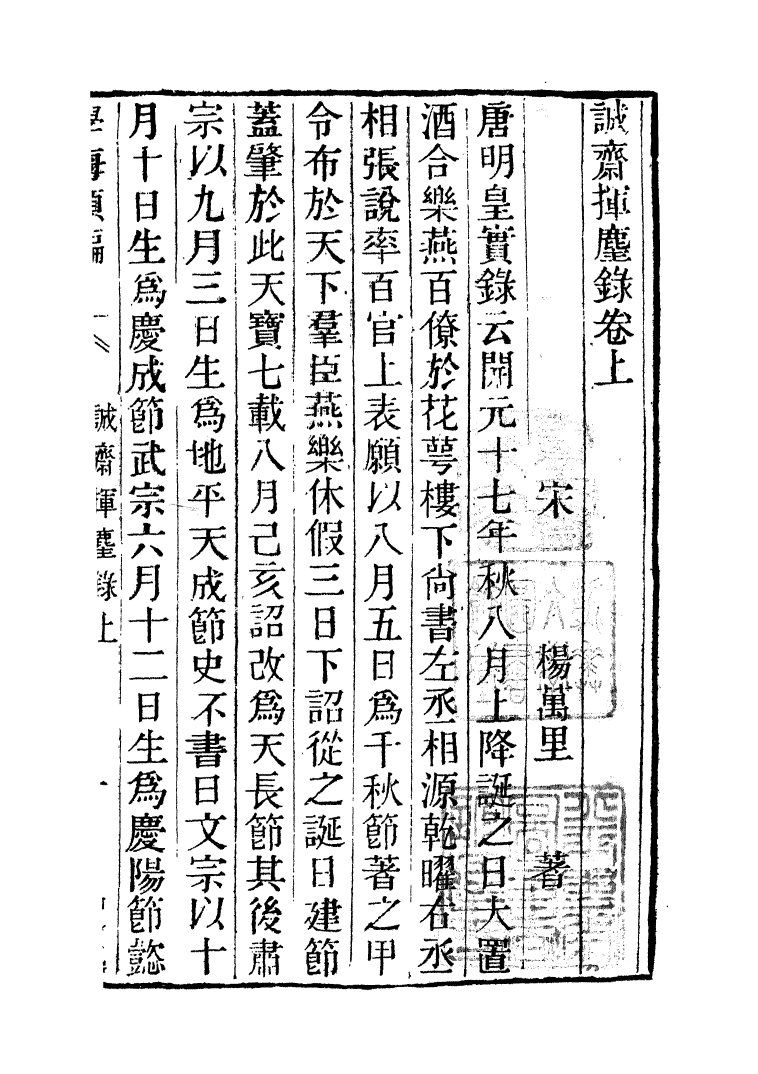 誠齋揮麈錄卷上
宋 楊萬里 著
唐明皇實錄云開元十七年秋八月上降誕之日大置
酒合樂燕百僚於花萼樓下尙書左丞相源乾曜右丞
相張說率百官上表願以八月五日爲千秋節著之甲
令布於天下羣臣燕樂休假三日下詔從之誕日建節
蓋肇於此天寶七載八月己亥詔改爲天長節其後肅
宗以九月三日生爲地平天成節史不書日文宗以十
月十日生爲慶成節武宗六月十二日生爲慶陽節懿
學海類編 誠齋揮麈錄上 一